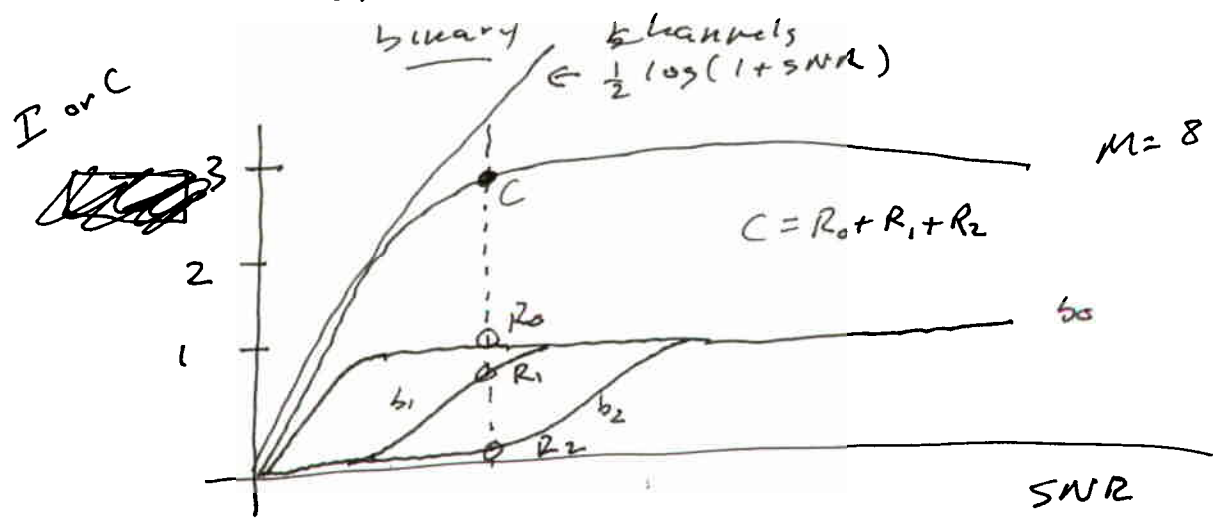 binary channels
← 1/2 log(1+SNR)
I or C
3
M = 8
C
C = R₀ + R₁ + R₂
2
R₀
b₀
1
R₁
b₁
b₂
R₂
SNR